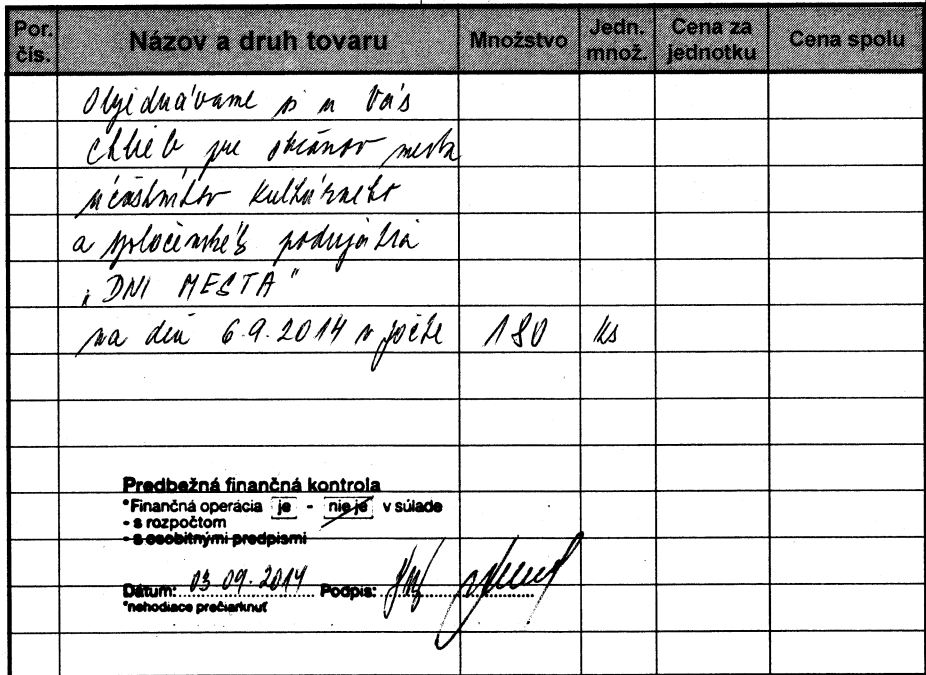 Por. čís. Názov a druh tovaru Množstvo Jedn. množ. Cena za jednotku Cena spolu
Objednávame si u Vás
chlieb pre občanov mesta
účastníkov kultúrneho
a spoločenské podujatia
„DNI MESTA"
na deň 6.9.2014 v počte 180 ks
Predbežná finančná kontrola
*Finančná operácia je - nie je v súlade
- s rozpočtom
- s osobitnými predpismi
Dátum: 03.09.2014 Podpis:
*nehodiace prečiarknuť